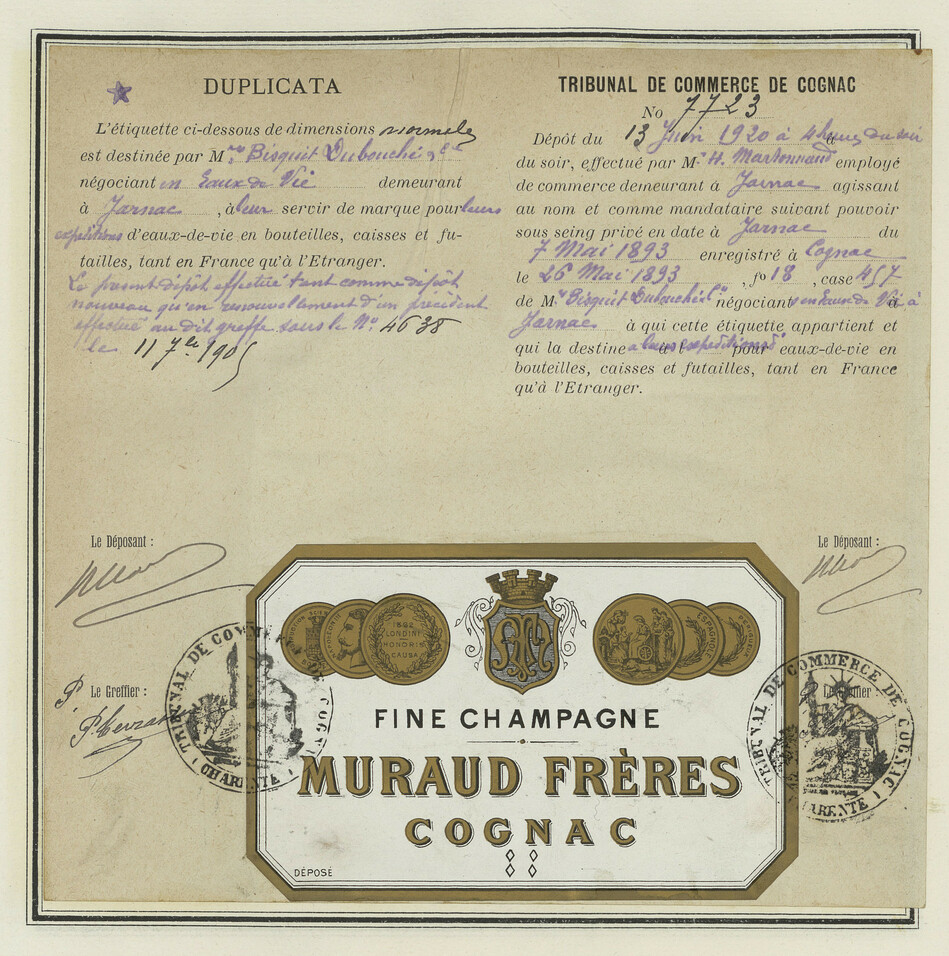 DUPLICATA
L'étiquette ci-dessous de dimensions normale
est destinée par M.rs Bisquit Dubouché & Cie
négociant en Eaux de Vie demeurant
à Jarnac, à leur servir de marque pour leurs
expéditions d'eaux-de-vie en bouteilles, caisses et fu-
tailles, tant en France qu'à l'Etranger.
Le présent dépôt effectué tant comme dépôt
nouveau qu'en renouvellement d'un précédent
effectué au dit greffe sous le No. 4638
le 11 7bre 1905
TRIBUNAL DE COMMERCE DE COGNAC
No 7723
Dépôt du 13 Juin 1920 à 4 heures du soir
du soir, effectué par M.r H. employé
de commerce demeurant à Jarnac agissant
au nom et comme mandataire suivant pouvoir
sous seing privé en date à Jarnac du
7 Mai 1893 enregistré à Cognac
le 26 Mai 1893, fo 18, case 457
de M.rs Bisquit Dubouché & Cie négociant en Eaux de Vie à
Jarnac à qui cette étiquette appartient et
qui la destine à leurs expéditions d' pour eaux-de-vie en
bouteilles, caisses et futailles, tant en France
qu'à l'Etranger.
Le Déposant :
Le Déposant :
P. Le Greffier :
Le Greffier
TRIBUNAL DE COMMERCE DE COGNAC
CHARENTE
TRIBUNAL DE COMMERCE DE COGNAC
CHARENTE
1862
LONDINI
HONORIS
CAUSA
FINE CHAMPAGNE
MURAUD FRÈRES
COGNAC
DÉPOSÉ